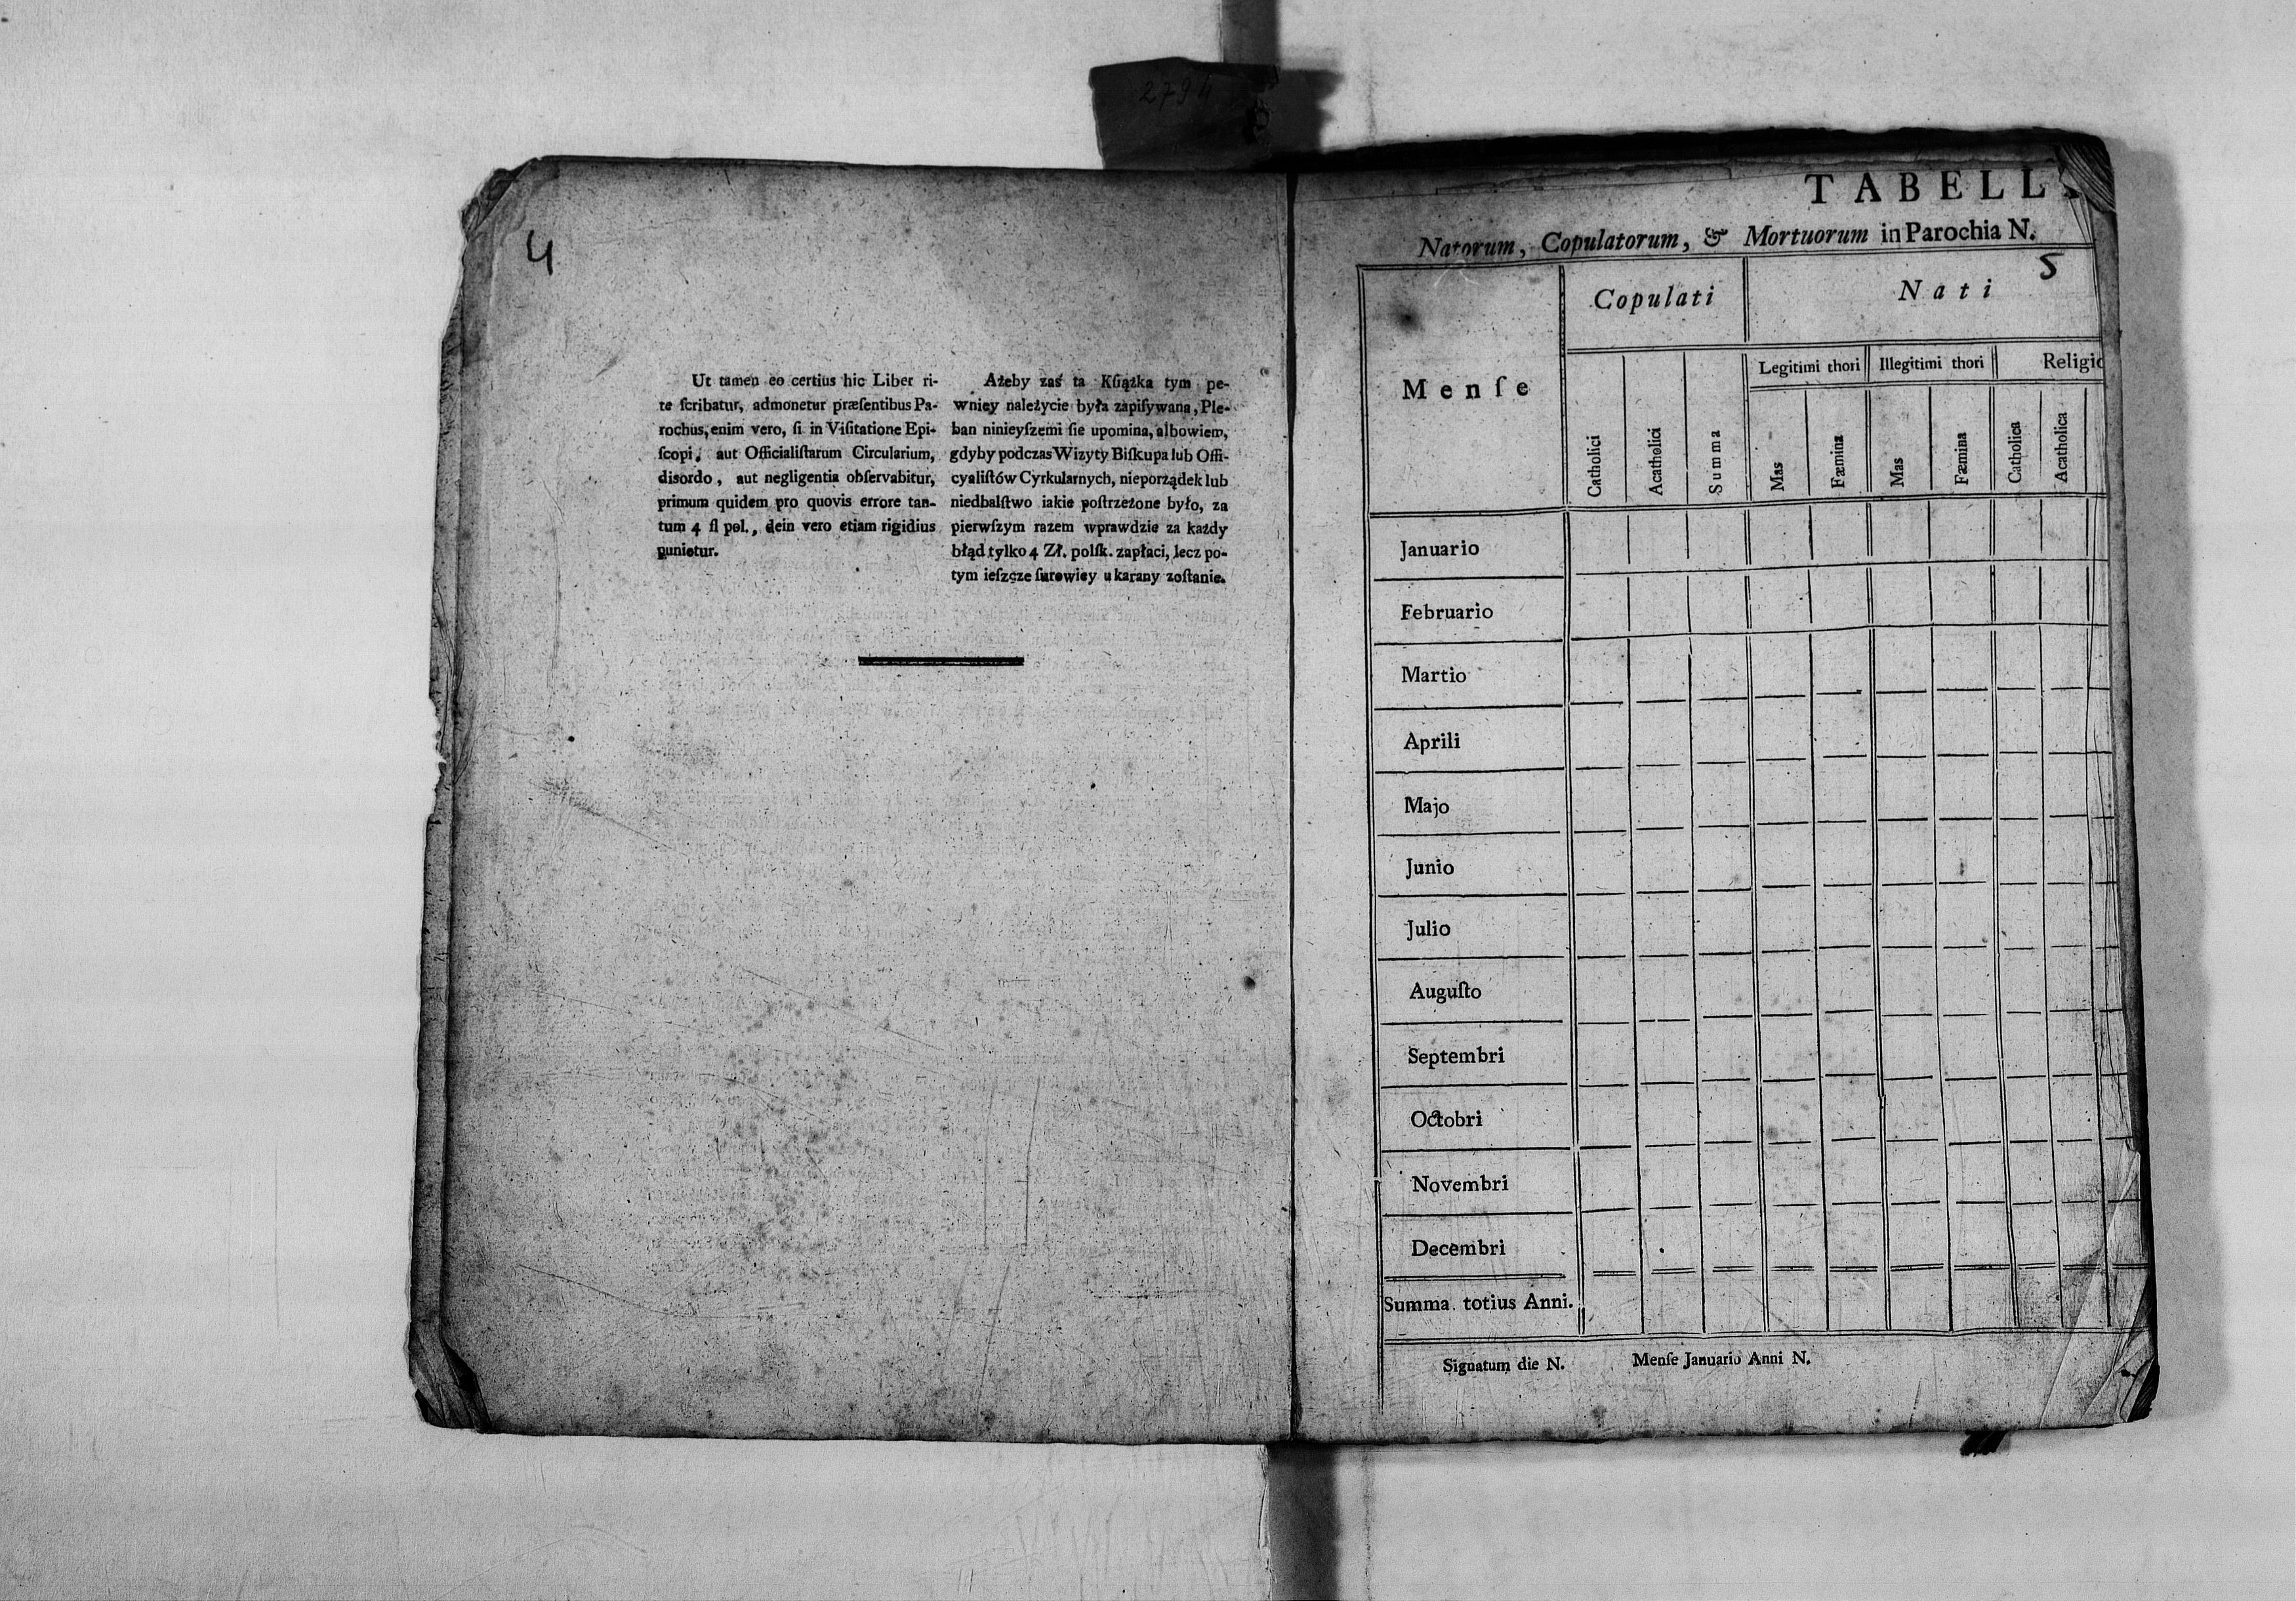 279
4
Ut tamen eo certius hic Liber ri-
te ſcribatur, admonetur præſentibus Pa-
rochus, enim vero, ſi in Viſitatione Epi-
ſcopi, aut Officialiſtarum Circularium,
disordo, aut negligentia obſervabitur,
primum quidem pro quovis errore tan-
tum 4 fl pol., dein vero etiam rigidius
punietur.
Ażeby zaś ta Kſiążka tym pe-
wniey należycie była zapiſywana, Ple-
ban ninieyſzemi ſie upomina, albowiem,
gdyby podczas Wizyty Biſkupa lub Offi-
cyaliſtów Cyrkularnych, nieporządek lub
niedbalſtwo iakie poſtrzeżone było, za
pierwſzym razem wprawdzie za każdy
błąd tylko 4 Zł. polſk. zapłaci, lecz po-
tym ieſzcze ſurowiey ukarany zoſtanie.
TABELL
Natorum, Copulatorum, & Mortuorum in Parochia N.
5
Menſe
Copulati
Nati
Legitimi thori
Illegitimi thori
Religio
Catholici
Acatholici
Summa
Mas
Fæmina
Mas
Fæmina
Catholica
Acatholica
Januario
Februario
Martio
Aprili
Majo
Junio
Julio
Auguſto
Septembri
Octobri
Novembri
Decembri
Summa totius Anni.
Signatum die N. Menſe Januario Anni N.